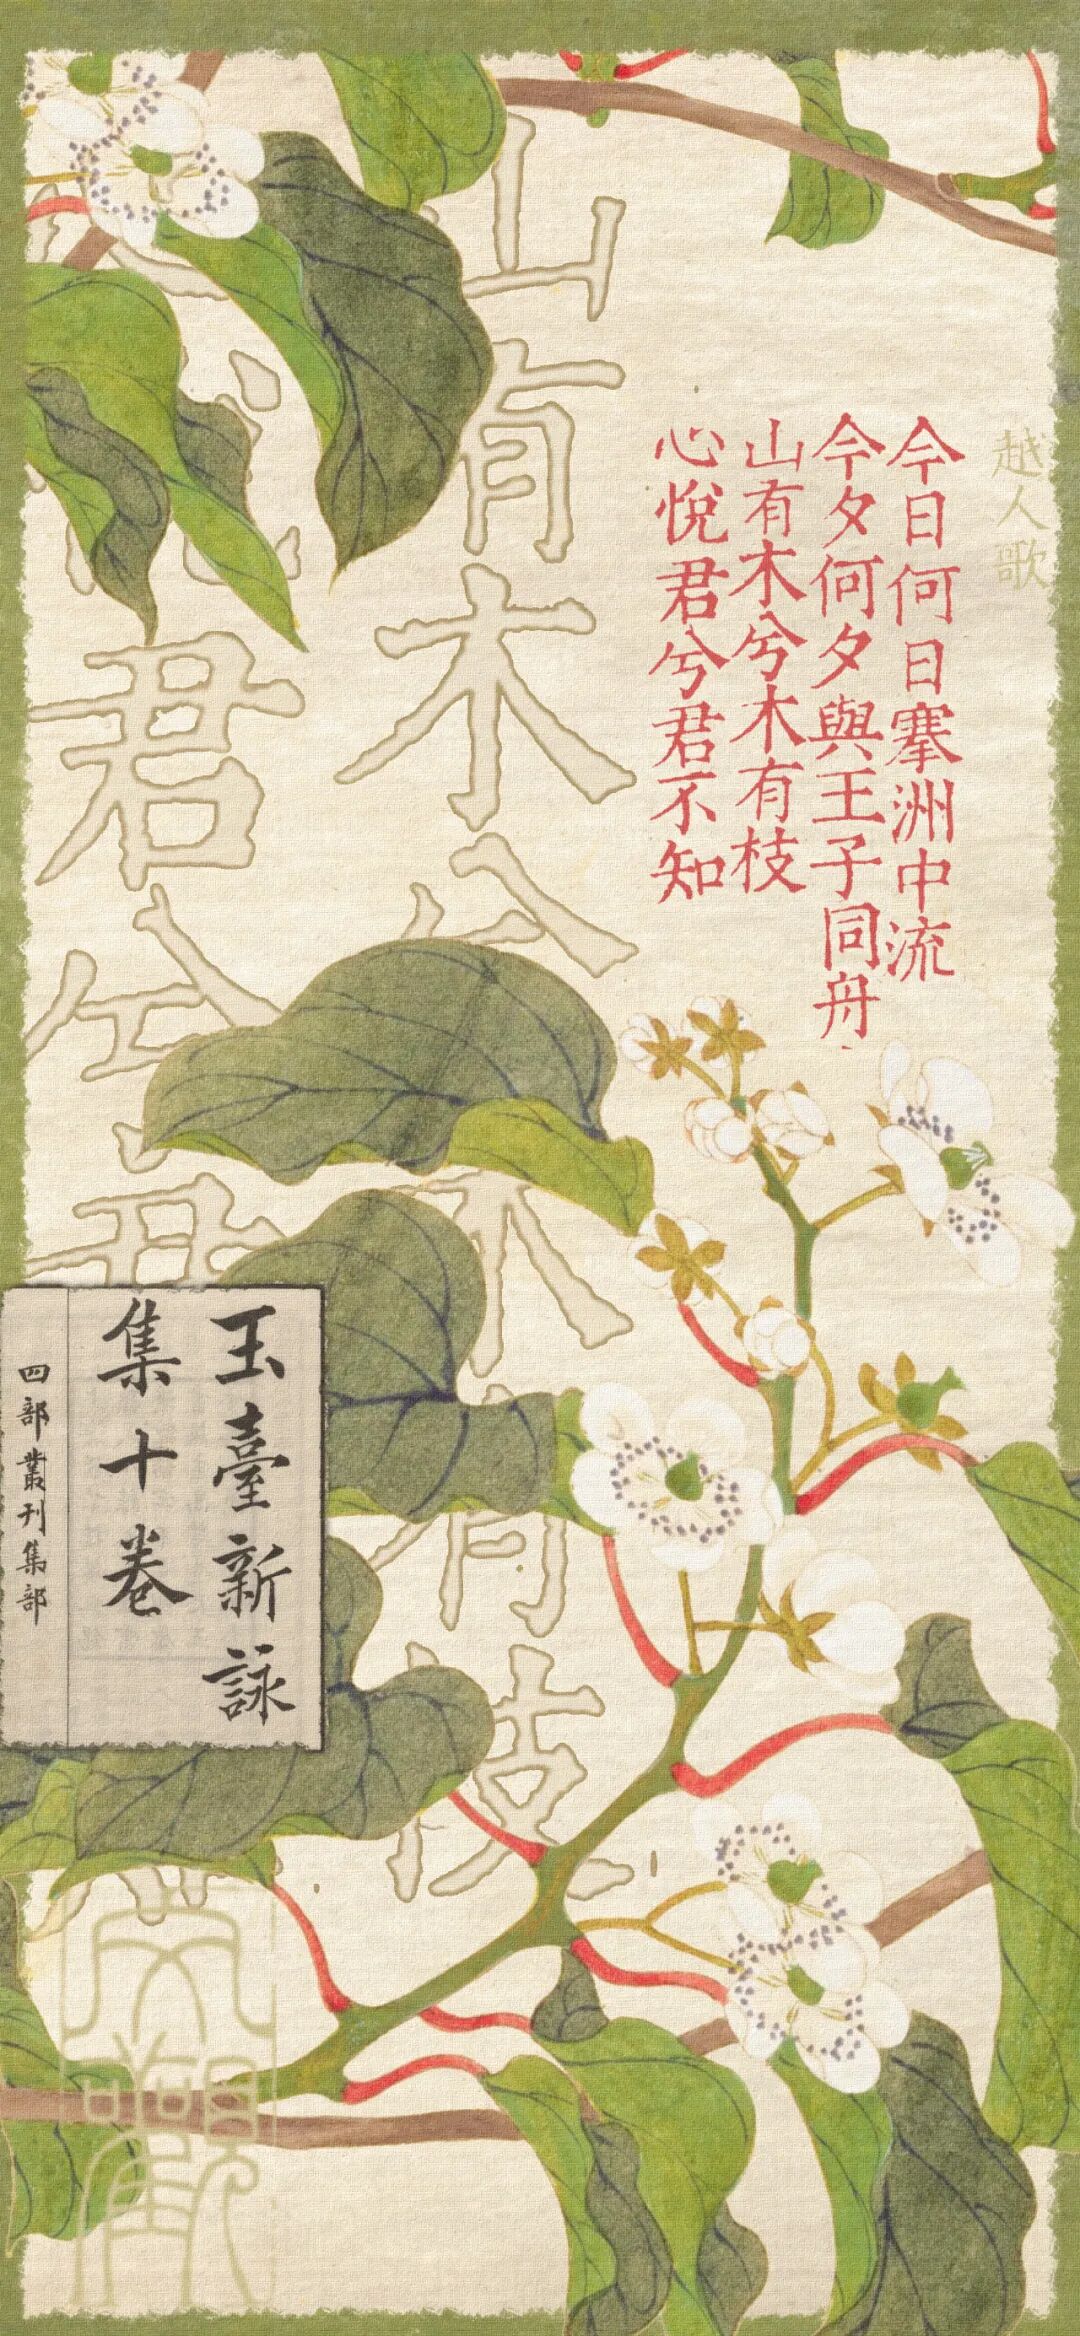 越人歌
今日何日搴洲中流
今夕何夕與王子同舟
山有木兮木有枝
心悅君兮君不知
山有木兮木有枝
君兮君
玉臺新詠
集十卷
四部叢刊集部